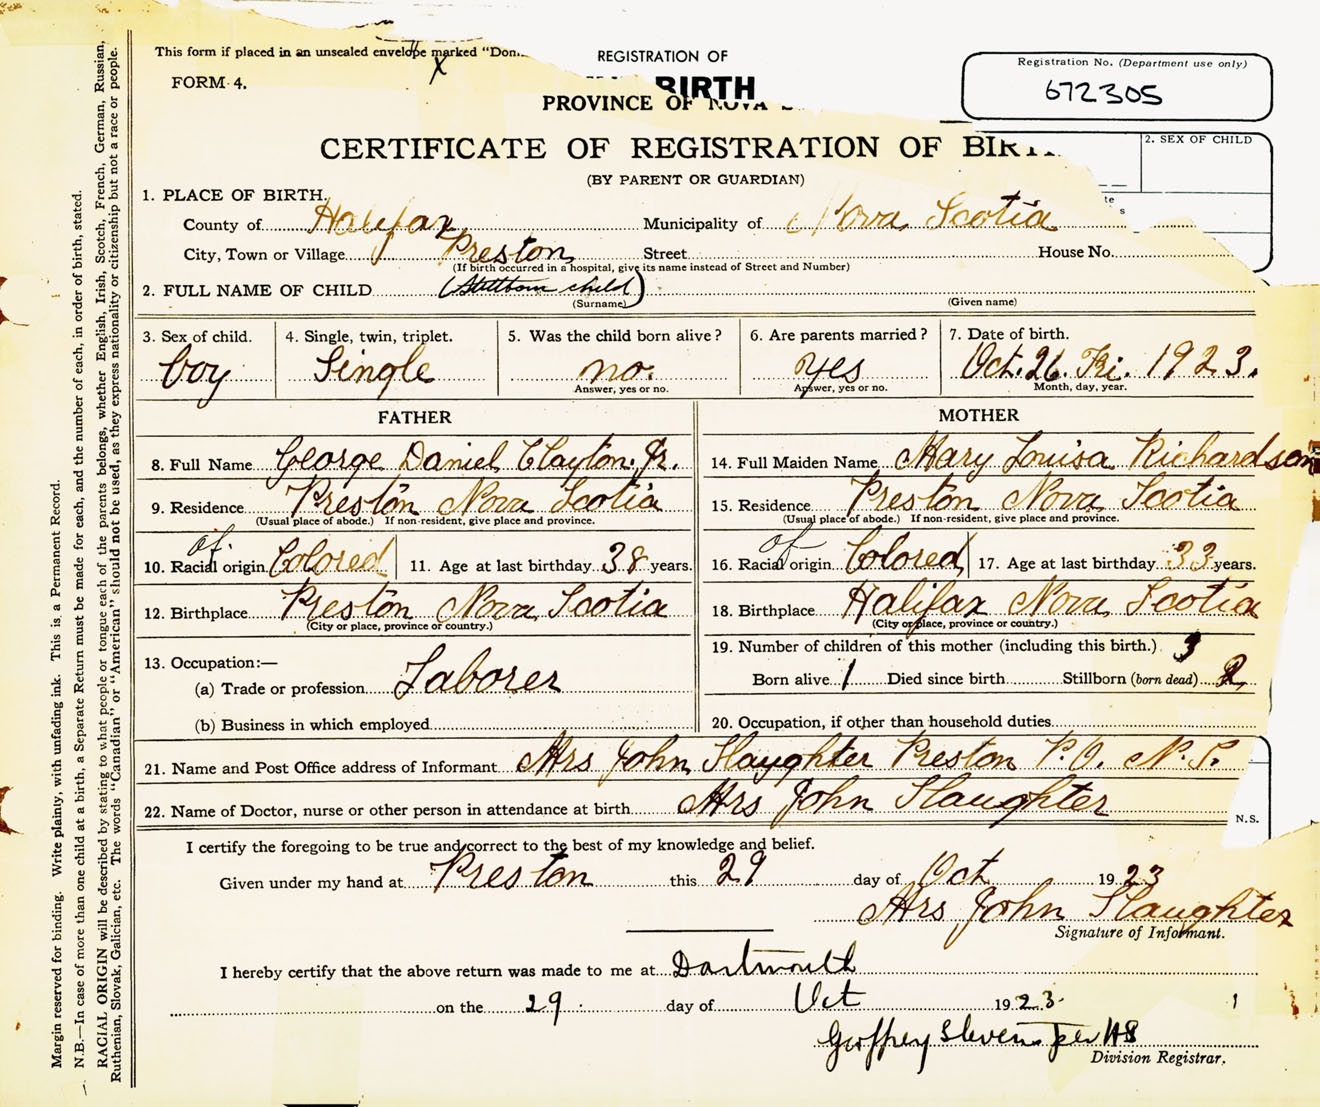 This form if placed in an unsealed envelope marked "Dom
FORM 4.
x
REGISTRATION OF
BIRTH
PROVINCE OF NOVA S
Registration No. (Department use only)
672305
2. SEX OF CHILD
CERTIFICATE OF REGISTRATION OF BIRT
(BY PARENT OR GUARDIAN)
1. PLACE OF BIRTH.
County of Halifax Municipality of Nova Scotia
City, Town or Village Preston Street House No.
(If birth occurred in a hospital, give its name instead of Street and Number)
2. FULL NAME OF CHILD (Stillborn child)
(Surname) (Given name)
3. Sex of child. 4. Single, twin, triplet. 5. Was the child born alive? 6. Are parents married? 7. Date of birth.
boy Single no. yes Oct. 26. Fri. 1923.
Answer, yes or no. Answer, yes or no. Month, day, year.
FATHER
8. Full Name George Daniel Clayton. Jr.
9. Residence Preston Nova Scotia
(Usual place of abode.) If non-resident, give place and province.
of
10. Racial origin Colored 11. Age at last birthday 38 years.
12. Birthplace Preston Nova Scotia
(City or place, province or country.)
13. Occupation:—
(a) Trade or profession Laborer
(b) Business in which employed
MOTHER
14. Full Maiden Name Mary Louisa Richardson
15. Residence Preston Nova Scotia
(Usual place of abode.) If non-resident, give place and province.
of
16. Racial origin Colored 17. Age at last birthday 33 years.
18. Birthplace Halifax Nova Scotia
(City or place, province or country.)
19. Number of children of this mother (including this birth.) 3
Born alive 1 Died since birth Stillborn (born dead) 2
20. Occupation, if other than household duties
21. Name and Post Office address of Informant Mrs John Slaughter Preston P.O. N.S.
22. Name of Doctor, nurse or other person in attendance at birth Mrs John Slaughter
N.S.
I certify the foregoing to be true and correct to the best of my knowledge and belief.
Given under my hand at Preston this 29 day of Oct 1923
Mrs John Slaughter
Signature of Informant.
I hereby certify that the above return was made to me at Dartmouth
on the 29 day of Oct 1923.
1
Geoffrey Stevens per HS
Division Registrar.
Margin reserved for binding. Write plainly, with unfading ink. This is a Permanent Record.
N.B.—In case of more than one child at a birth, a Separate Return must be made for each, and the number of each, in order of birth, stated.
RACIAL ORIGIN will be described by stating to what people or tongue each of the parents belongs, whether English, Irish, Scotch, French, German, Russian,
Ruthenian, Slovak, Galician, etc. The words "Canadian" or "American" should not be used, as they express nationality or citizenship but not a race or people.